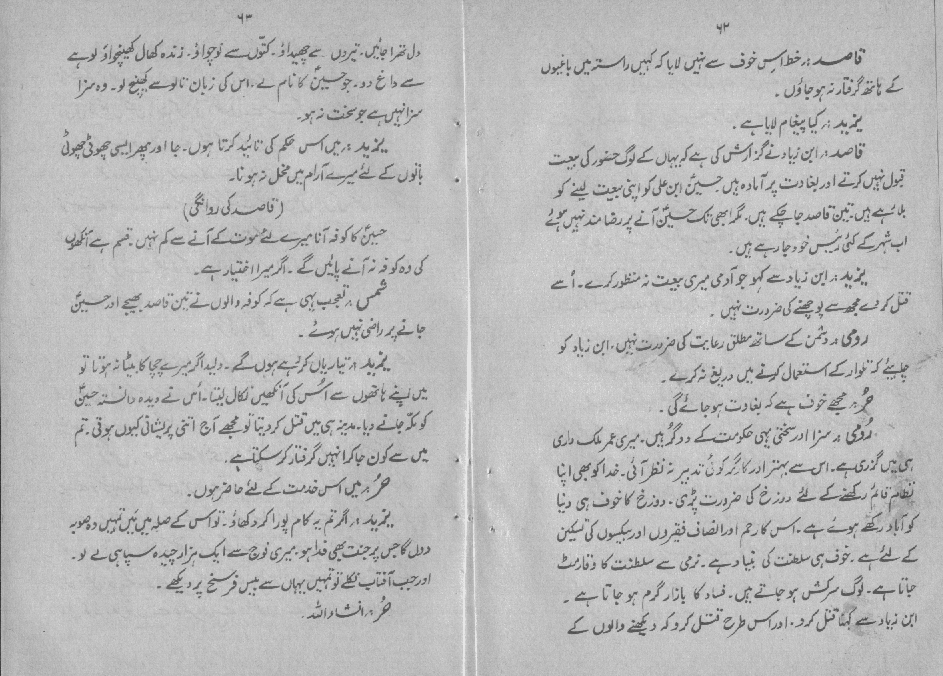 ۶۲
قاصد:۔ خط اس خوف سے نہیں لایا کہ کہیں راستہ میں باغیوں
کے ہاتھ گرفتار نہ ہو جاؤں ۔
یزید:۔ کیا پیغام لایا ہے ۔
قاصد:۔ ابن زیاد نے گزارش کی ہے کہ یہاں کے لوگ حضور کی بیعت
قبول نہیں کرتے اور بغاوت پر آمادہ ہیں حسینؑ ابن علی کو اپنی بیعت لینے کو
بلا رہے ہیں۔ تین قاصد جا چکے ہیں۔ مگر ابھی تک حسینؑ آنے پر رضا مند نہیں ہوئے
اب شہر کے کئی رئیس خود جا رہے ہیں ۔
یزید:۔ ابن زیاد سے کہو جو آدمی میری بیعت نہ منظور کرے۔ اُسے
قتل کر دے مجھ سے پوچھنے کی ضرورت نہیں ۔
رومی:۔ دشمن کے ساتھ مطلق رعایت کی ضرورت نہیں۔ ابن زیاد کو
چاہیئے کہ تلوار کے استعمال کرنے میں دریغ نہ کرے ۔
حُر:۔ مجھے خوف ہے کہ بغاوت ہو جائے گی ۔
رُومی:۔ سزا اور سختی یہی حکومت کے دو گُر ہیں۔ میری عمر ملک داری
ہی میں گزری ہے۔ اس سے بہتر اور کارگر کوئی تدبیر نہ نظر آئی۔ خدا کو بھی اپنا
نظام قائم رکھنے کے لئے دوزخ کی ضرورت پڑی۔ دوزخ کا خوف ہی دنیا
کو آباد رکھے ہوئے ہے۔ اس کا رحم اور انصاف فقیروں اور بیکسوں کی تسکین
کے لئے ہے۔ خوف ہی سلطنت کی بنیاد ہے۔ نرمی سے سلطنت کا وقار مٹ
جاتا ہے۔ لوگ سرکش ہو جاتے ہیں۔ فساد کا بازار گرم ہو جاتا ہے ۔
ابن زیاد سے کہنا قتل کرو ۔ اور اس طرح قتل کرو کہ دیکھنے والوں کے
۶۳
دل تھرا جائیں۔ تیروں سے چھیداؤ۔ کتّوں سے نوچواؤ۔ زندہ کھال کھینچواؤ لوہے
سے داغ دو۔ جو حسینؑ کا نام لے۔ اس کی زبان تالو سے کھینچ لو۔ وہ سزا
سزا نہیں ہے جو سخت نہ ہو۔
یزید:۔ میں اس حکم کی تائید کرتا ہوں۔ جا اور پھر ایسی چھوٹی چھوٹی
باتوں کے لئے میرے آرام میں مخل نہ ہونا۔
(قاصد کی روانگی)
حسینؑ کا کوفہ آنا میرے لئے موت کے آنے سے کم نہیں۔ قسم ہے آنکھوں
کی وہ کوفہ نہ آنے پائیں گے ۔ اگر میرا اختیار ہے۔
شمس:۔ تعجب یہی ہے کہ کوفہ والوں نے تین قاصد بھیجے اور حسینؑ
جانے پر راضی نہیں ہوئے ۔
یزید:۔ تیاریاں کر رہے ہوں گے۔ ولید اگر میرے چچا کا بیٹا نہ ہوتا تو
میں اپنے ہاتھوں سے اُس کی آنکھیں نکال لیتا۔ اُس نے دیدہ دانستہ حسینؑ
کو مکّہ جانے دیا۔ مدینہ ہی میں قتل کر دیتا تو مجھے آج اتنی پریشانی کیوں ہوتی۔ تم
میں سے کون جا کر انہیں گرفتار کر سکتا ہے۔
حُر:۔ میں اس خدمت کے لئے حاضر ہوں۔
یزید:۔ اگر تم یہ کام پورا کر دکھاؤ۔ تو اُس کے صلہ میں میں تمہیں وہ صوبہ
دوں گا جس پر جنت بھی فدا ہو۔ میری فوج سے ایک ہزار چیدہ سپاہی لے لو۔
اور جب آفتاب نکلے تو تمہیں یہاں سے بیس فرسخ پر دیکھے ۔
حُر:۔ انشاء اللہ